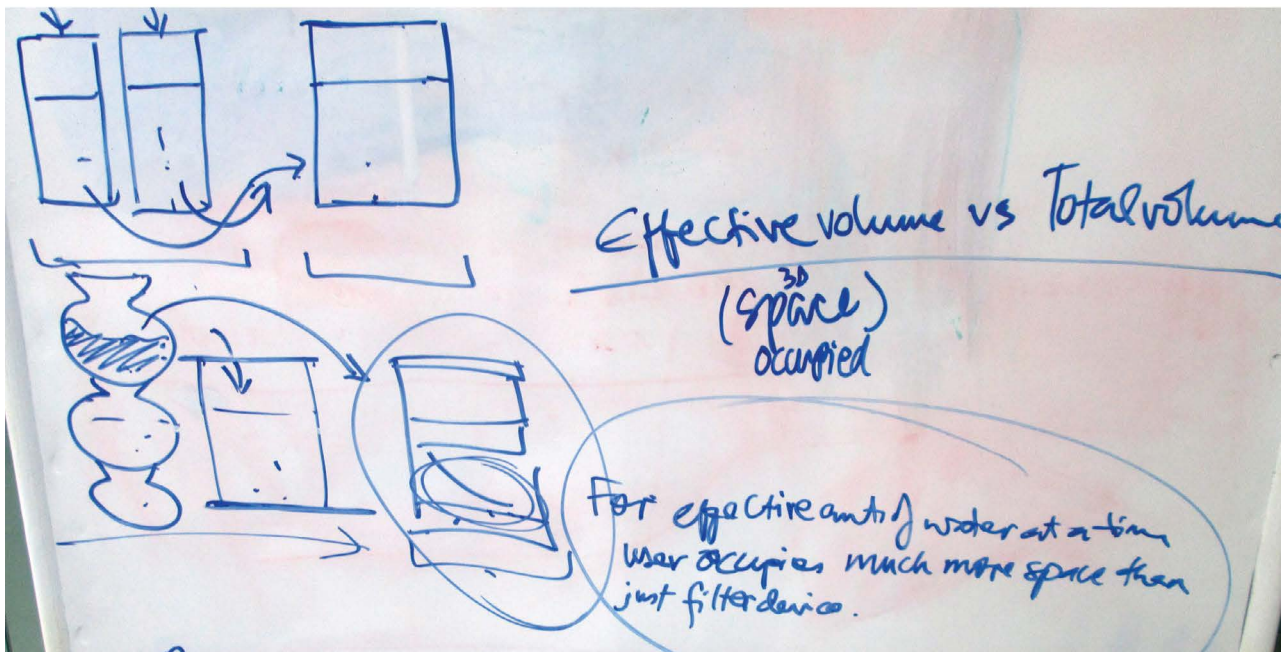 Effective volume vs Total volume
3D
(space)
occupied
For effective amt of water at a time
user occupies much more space than
just filter device.